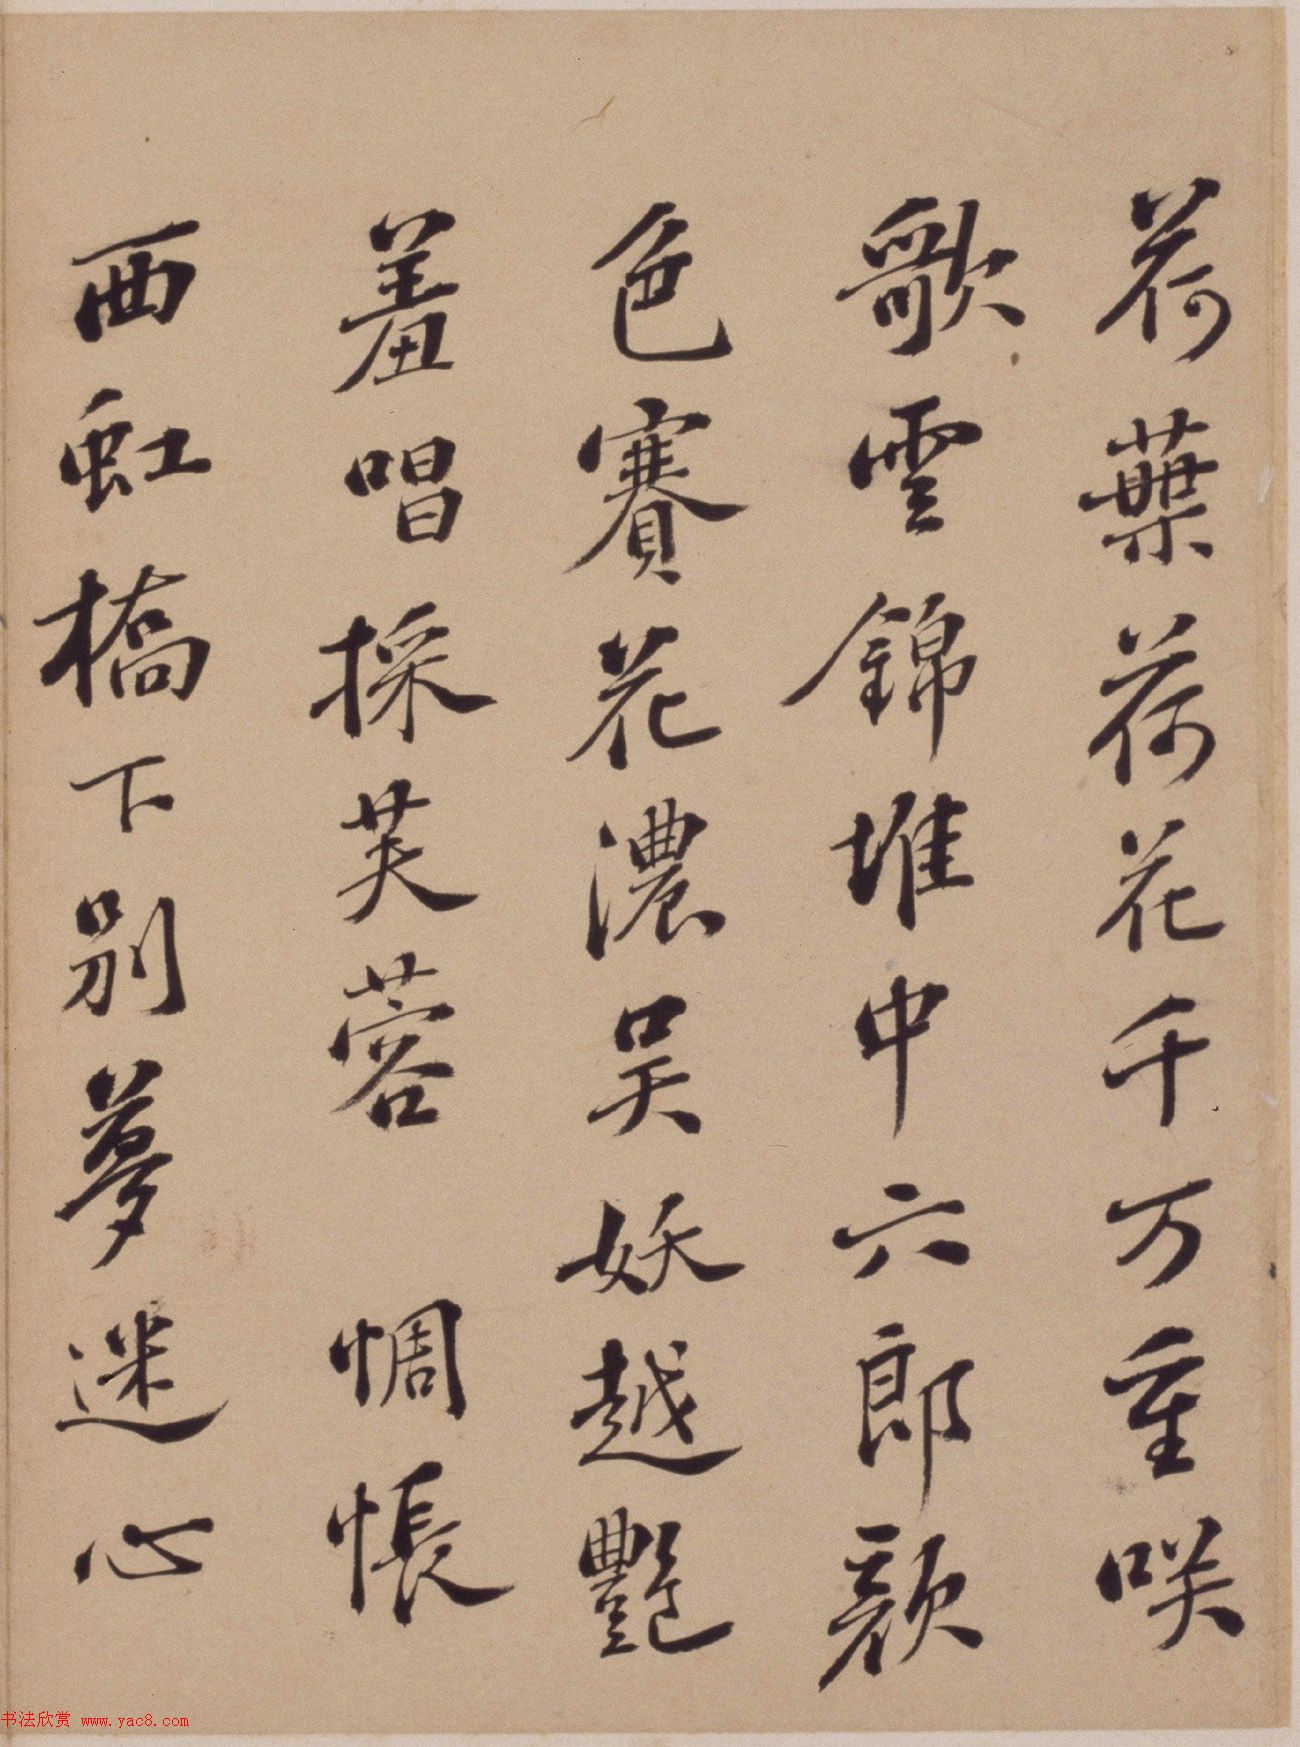 荷葉荷花千万重咲
歌雲錦堆中六郎顔
色賽花濃吴妖越艷
羞唱採芙蓉 惆悵
西虹橋下别夢迷心
书法欣赏 www.yac8.com